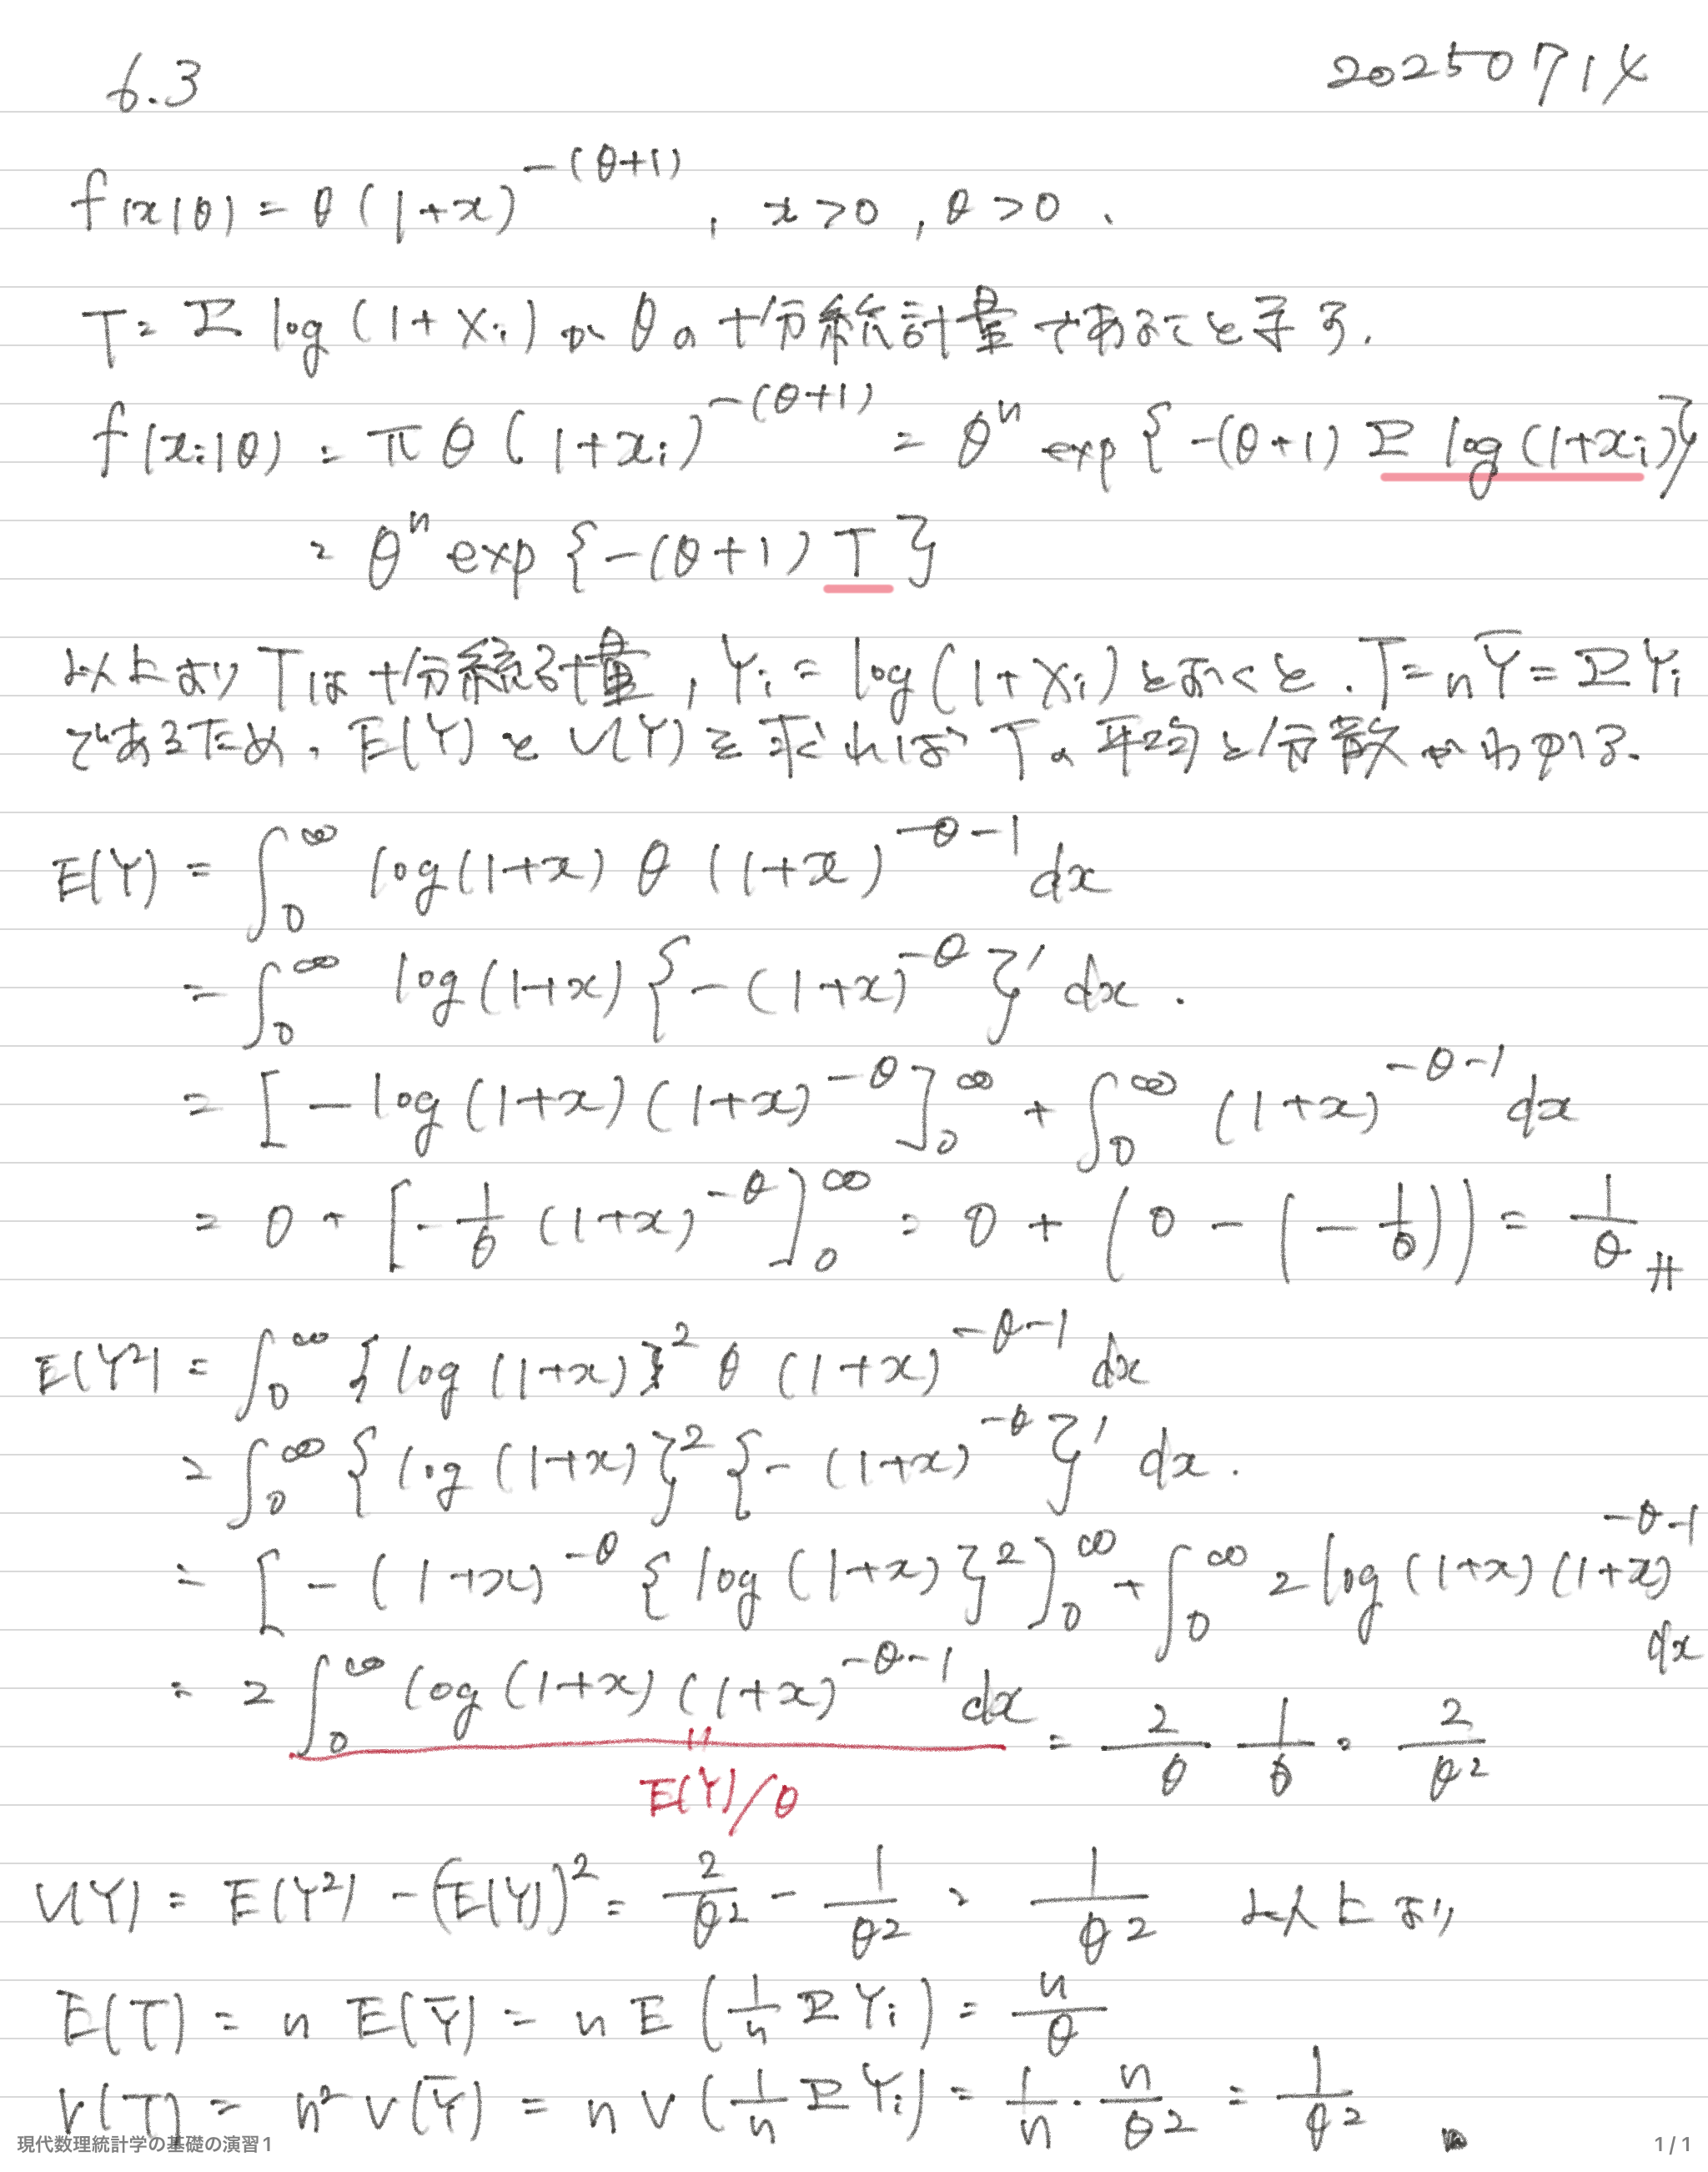 6.3 20250714
f(x|θ) = θ(1+x)^{-(θ+1)}, x>0, θ>0.
T = Σ log(1+Xi) が θ の十分統計量であること示す.
f(xi|θ) = π θ(1+xi)^{-(θ+1)} = θ^n exp{-(θ+1) Σ log(1+xi)}
= θ^n exp{-(θ+1) T}
以上より T は十分統計量, Yi = log(1+Xi) とおくと. T = nȲ = ΣYi
であるため, E(Y) と V(Y) を求れば T の平均と分散がわかる.
E(Y) = ∫_0^∞ log(1+x) θ (1+x)^{-θ-1} dx
= ∫_0^∞ log(1+x) {-(1+x)^{-θ}}' dx.
= [-log(1+x)(1+x)^{-θ}]_0^∞ + ∫_0^∞ (1+x)^{-θ-1} dx
= 0 + [-1/θ (1+x)^{-θ}]_0^∞ = 0 + (0 - (-1/θ)) = 1/θ #
E(Y²) = ∫_0^∞ {log(1+x)}² θ (1+x)^{-θ-1} dx
= ∫_0^∞ {log(1+x)}² {-(1+x)^{-θ}}' dx.
= [-(1+x)^{-θ} {log(1+x)}²]_0^∞ + ∫_0^∞ 2 log(1+x)(1+x)^{-θ-1} dx
= 2 ∫_0^∞ log(1+x)(1+x)^{-θ-1} dx = 2/θ 1/θ = 2/θ²
E(Y)/θ
V(Y) = E(Y²) - (E(Y))² = 2/θ² - 1/θ² = 1/θ² 以上より
E(T) = n E(Ȳ) = n E(1/n ΣYi) = n/θ
V(T) = n² V(Ȳ) = n V(1/n ΣYi) = 1/n · n/θ² = 1/θ²
現代数理統計学の基礎の演習1 1/1